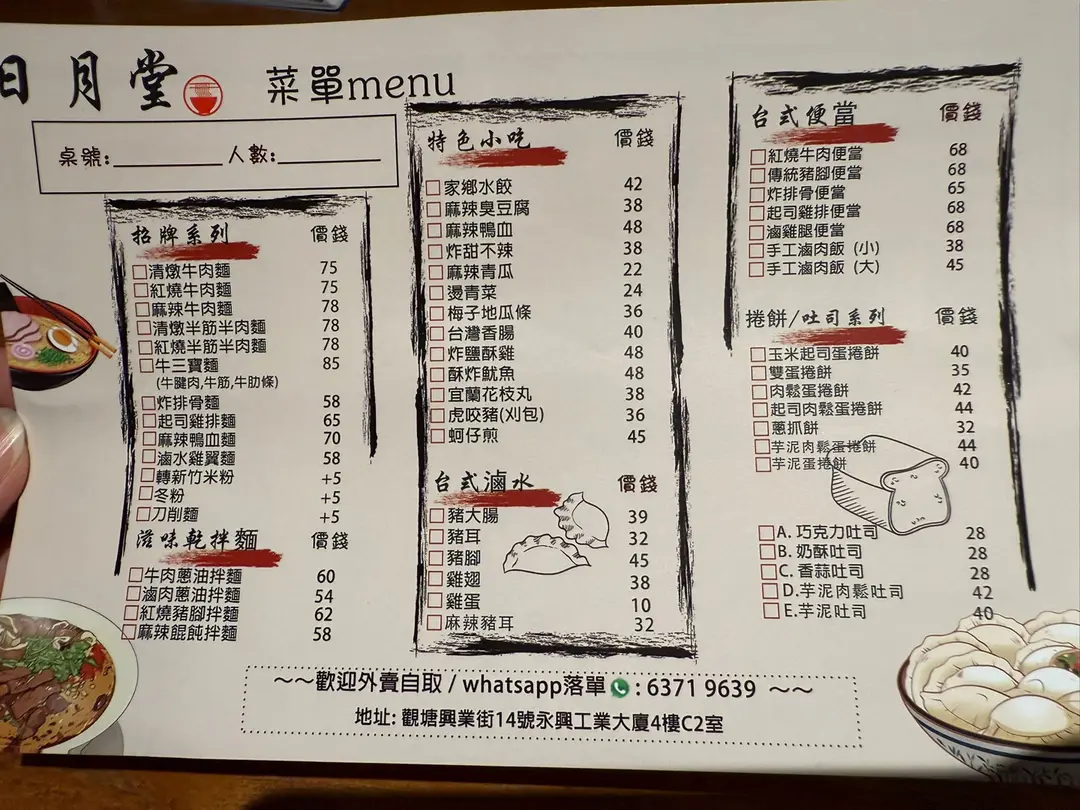 日月堂 菜單menu
桌號:________人數:________
招牌系列 價錢
清燉牛肉麵 75
紅燒牛肉麵 75
麻辣牛肉麵 78
清燉半筋半肉麵 78
紅燒半筋半肉麵 78
牛三寶麵 85
(牛腱肉,牛筋,牛肋條)
炸排骨麵 58
起司雞排麵 65
麻辣鴨血麵 70
滷水雞翼麵 58
轉新竹米粉 +5
冬粉 +5
刀削麵 +5
滋味乾拌麵 價錢
牛肉蔥油拌麵 60
滷肉蔥油拌麵 54
紅燒豬腳拌麵 62
麻辣餛飩拌麵 58
特色小吃 價錢
家鄉水餃 42
麻辣臭豆腐 38
麻辣鴨血 48
炸甜不辣 38
麻辣青瓜 22
燙青菜 24
梅子地瓜條 36
台灣香腸 40
炸鹽酥雞 48
酥炸魷魚 48
宜蘭花枝丸 38
虎咬豬(刈包) 36
蚵仔煎 45
台式滷水 價錢
豬大腸 39
豬耳 32
豬腳 45
雞翅 38
雞蛋 10
麻辣豬耳 32
台式便當 價錢
紅燒牛肉便當 68
傳統豬腳便當 68
炸排骨便當 65
起司雞排便當 68
滷雞腿便當 68
手工滷肉飯 (小) 38
手工滷肉飯 (大) 45
捲餅/吐司系列 價錢
玉米起司蛋捲餅 40
雙蛋捲餅 35
肉鬆蛋捲餅 42
起司肉鬆蛋捲餅 44
蔥抓餅 32
芋泥肉鬆蛋捲餅 44
芋泥蛋捲餅 40
A. 巧克力吐司 28
B. 奶酥吐司 28
C. 香蒜吐司 28
D.芋泥肉鬆吐司 42
E.芋泥吐司 40
~~歡迎外賣自取 / whatsapp落單 : 6371 9639 ~~
地址: 觀塘興業街14號永興工業大廈4樓C2室